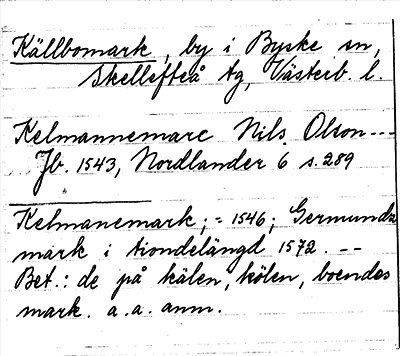 Källbomark, by i Byske sn,
Skellefteå tg, Västerb. l.
Kelmannemarc Nils Olson ---
Jb. 1543, Nordlander 6 s. 289
Kelmanemark; = 1546; Germundz
mark i tiondelängd 1572. --
Bet.: de på kälen, kölen, boendes
mark. a. a. anm.